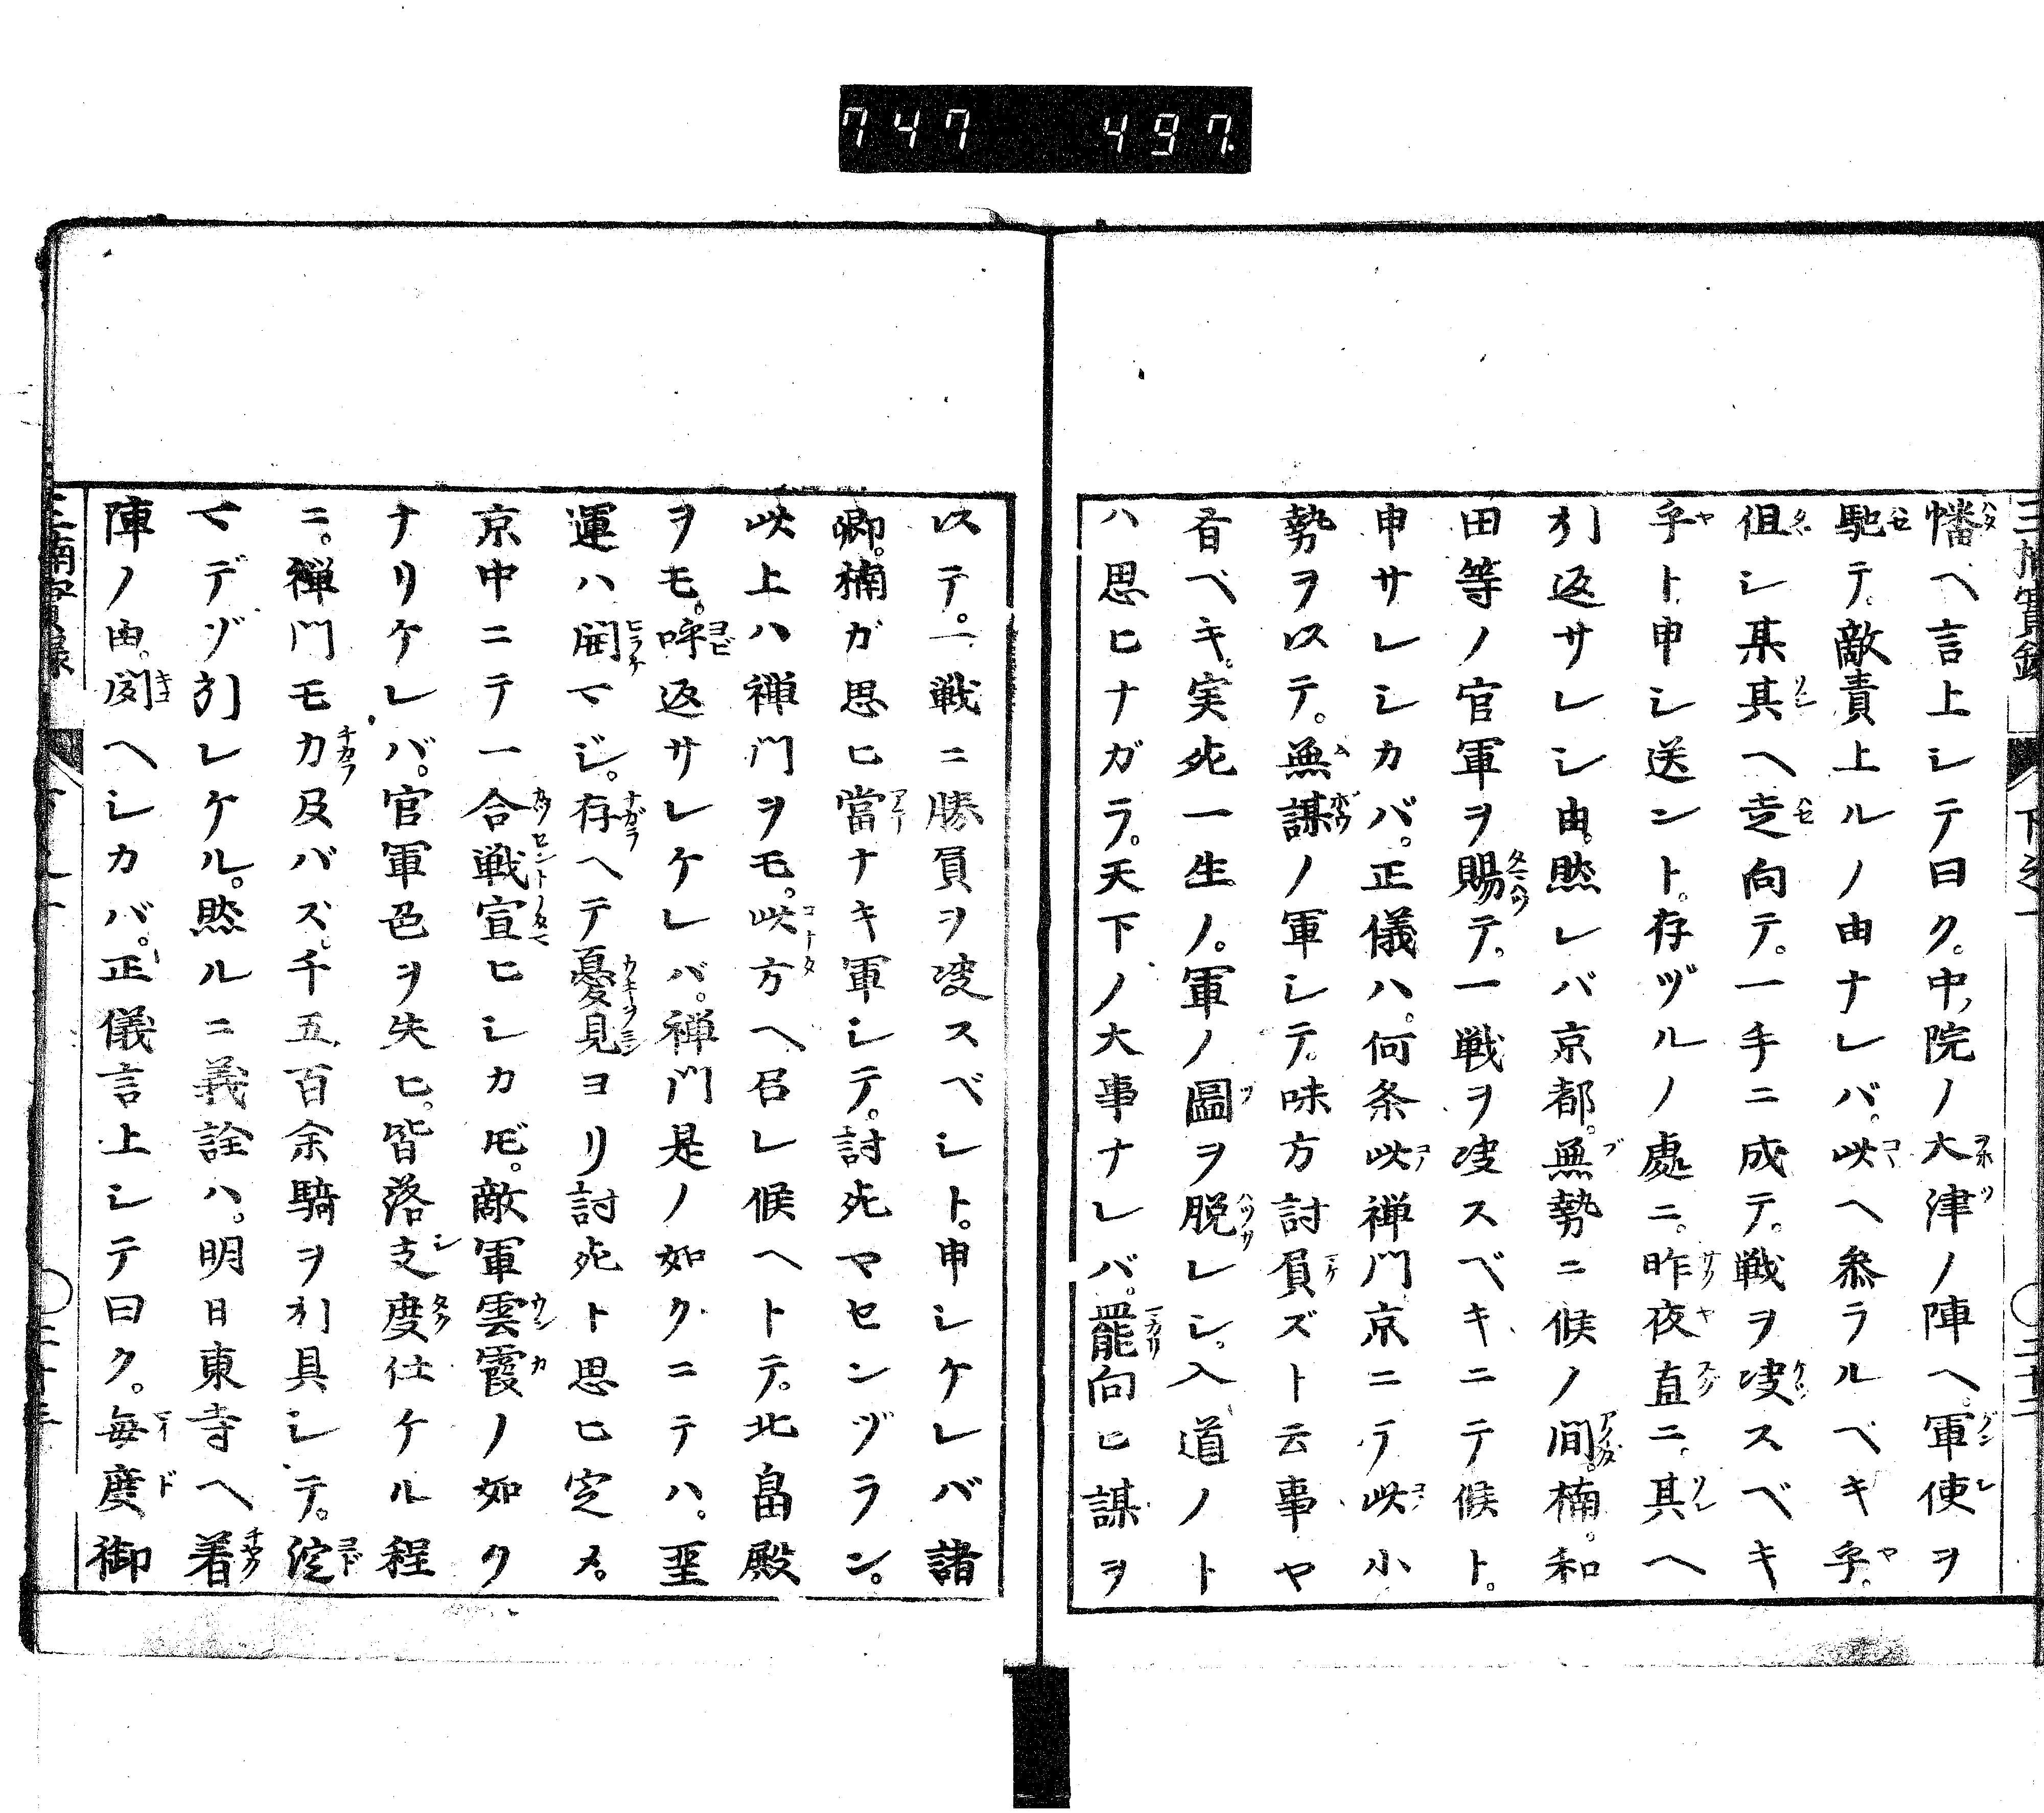 747 497.
三楠實録 下之十一 ○二十二
幡ヘ言上シテ曰ク。中院ノ大津ノ陣ヘ。軍使ヲ
馳テ。敵責上ルノ由ナレバ。此ヘ参ラルベキ乎。
但シ某其ヘ走向テ。一手ニ成テ。戦ヲ决スベキ
乎ト。申シ送ント。存ヅルノ處ニ。昨夜直ニ。其ヘ
引返サレシ由。然レバ京都。無勢ニ候ノ間。楠。和
田等ノ官軍ヲ賜テ。一戦ヲ决スベキニテ候ト。
申サレシカバ。正儀ハ。何条此禅門京ニテ此小
勢ヲ以テ。無謀ノ軍シテ。味方討負ズト云事ヤ
有ベキ。実死一生ノ。軍ノ圖ヲ脱レシ。入道ノト
ハ思ヒナガラ。天下ノ大事ナレバ。罷向ヒ謀ヲ
以テ。一戦ニ勝負ヲ决スベシト。申シケレバ諸
卿。楠ガ思ヒ當ナキ軍シテ。討死マセンヅラン。
此上ハ禅門ヲモ。此方ヘ召レ候ヘトテ。北畠殿
ヲモ。呼返サレケレバ。禅門是ノ如クニテハ。聖
運ハ開マジ。存ヘテ憂見ヨリ討死ト思ヒ定メ。
京中ニテ一合戦宣ヒシカ𪜈。敵軍雲霞ノ如ク
ナリケレバ。官軍色ヲ失ヒ。皆落支度仕ケル程
ニ。禅門モカ及バズ。千五百余騎ヲ引具シテ。淀
マデゾ引レケル。然ルニ義詮ハ。明日東寺ヘ着
陣ノ由。聞ヘシカバ。正儀言上シテ曰ク。毎度御
三楠實録